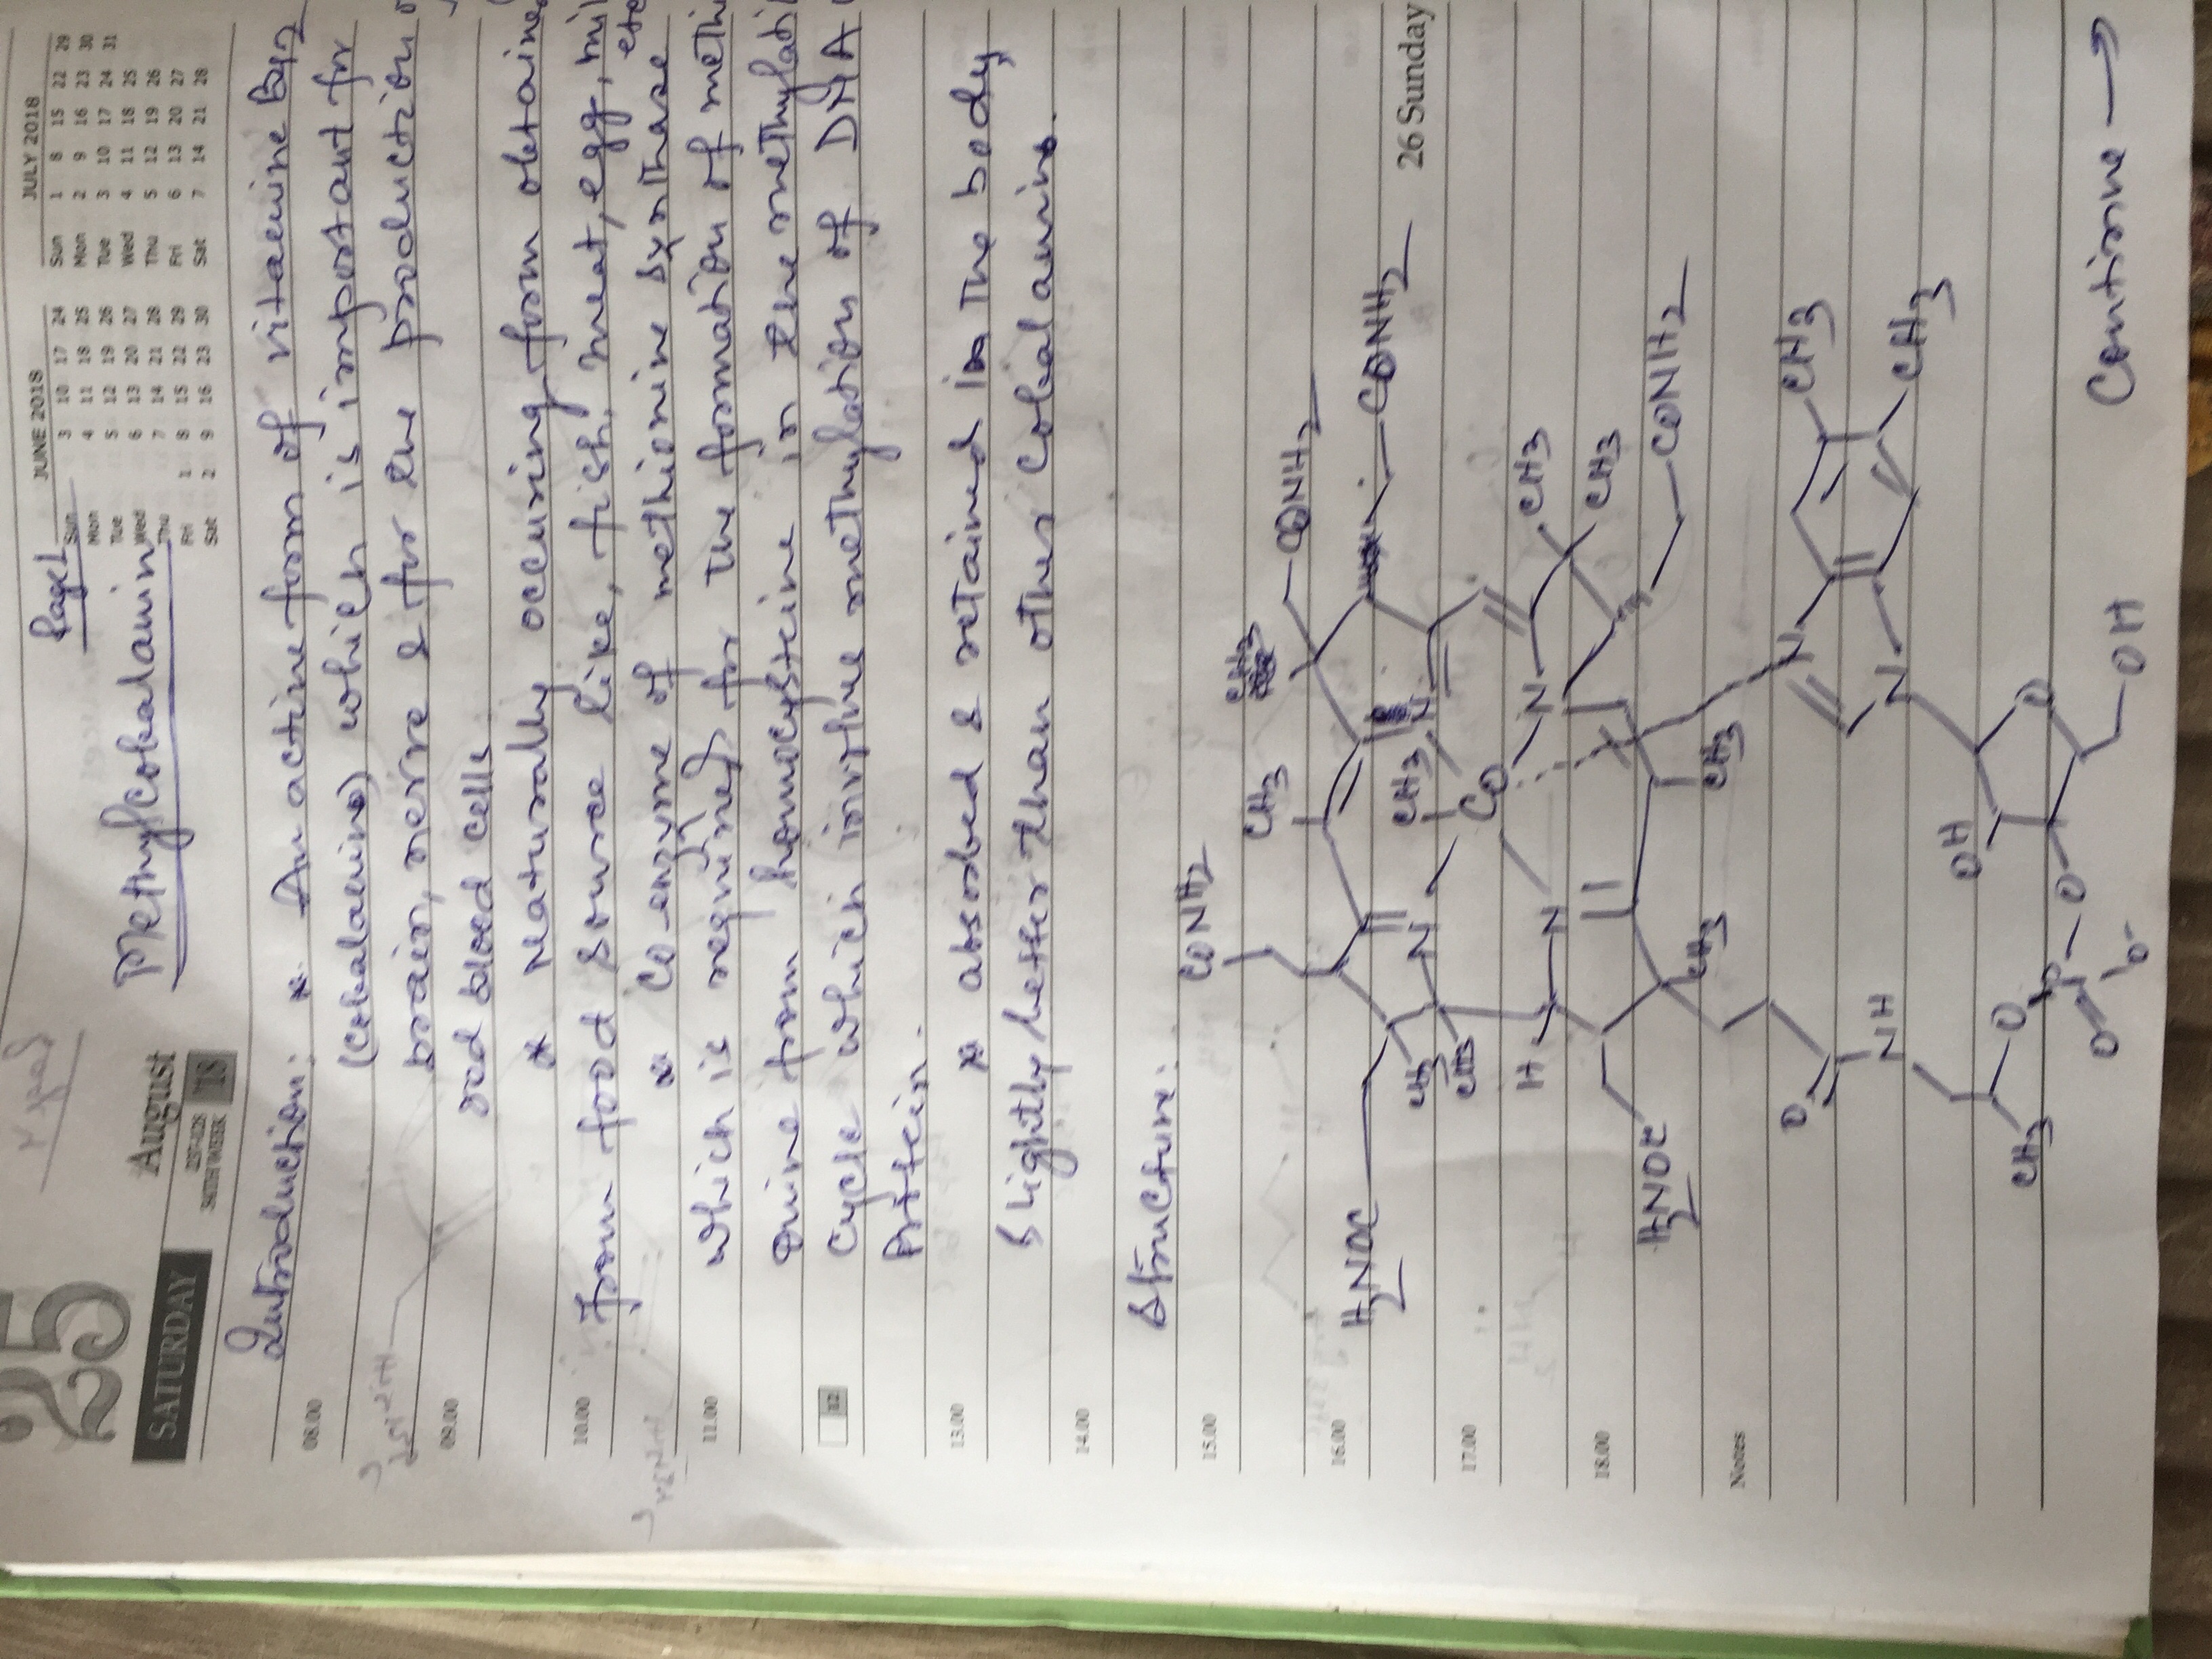 Page 1
25
SATURDAY
August
34TH WEEK
'18
Methylcobalamin
JUNE 2018
Sun 3 10 17 24
Mon 4 11 18 25
Tue 5 12 19 26
Wed 6 13 20 27
Thu 7 14 21 28
Fri 1 8 15 22 29
Sat 2 9 16 23 30
JULY 2018
Sun 1 8 15 22 29
Mon 2 9 16 23 30
Tue 3 10 17 24 31
Wed 4 11 18 25
Thu 5 12 19 26
Fri 6 13 20 27
Sat 7 14 21 28
Introduction: * An active form of vitamine B12
08.00
(Cobalamine) which is important for
brain, nerve & for the production
09.00
red blood cells
* Naturally occuring form obtained
10.00
from food source like, fish, meat, egg, mil
etc
* Co-enzyme of methionine synthase
11.00
which is required for the formation of methi
onine from homocysteine in the methylati
12
Cycle which involve methylation of DNA
Protein.
13.00
* absorbed & retained in the body
slightly better than other Cobalamins.
14.00
Structure:
15.00
CONH2
CH3
CH3
CONH2
16.00
H2NOC
CH3
CH3
N
N
CH3
CONH2
26 Sunday
17.00
Co
N
CH3
CH3
H
N
18.00
H2NOC
CH3
CH3
CONH2
Notes
O
N
CH3
NH
N
CH3
OH
O
CH3
O
P
O
OH
O
O-
Continue →